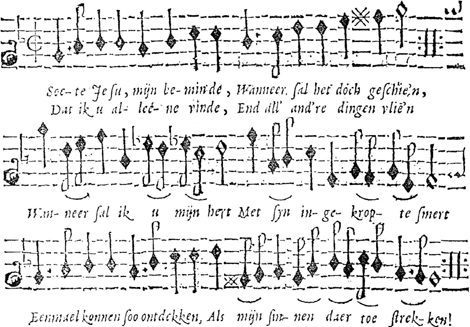 Soe-te Jesu, mijn be-minde, Wanneer sal het doch geschie'n,
Dat ik u al-lee-ne vinde, End all' and're dingen vlie'n
Wan-neer sal ik u mijn hert Met syn in-ge-krop-te smert
Eenmael konnen soo ontdekken, Als mijn sin-nen daer toe strek-ken!